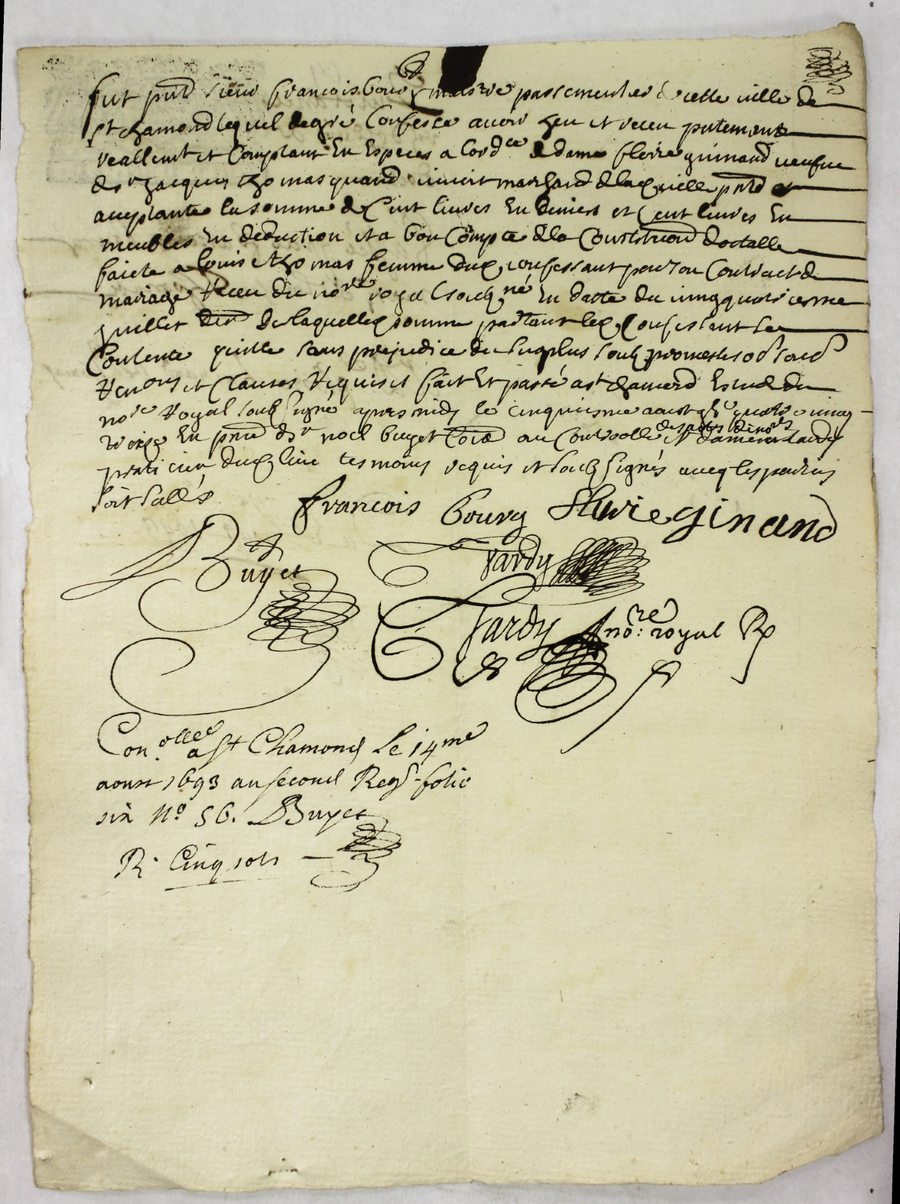 fut pnt sieur francois bourg maistre passementier de cette ville de
st chamond lequel de gré confesse avoir heu et receu presentement
reallemt et comptant en especes a lord.ce de dame fleurie ginand veufve
de sr Jacques thomas quand vivoit marchand de laquelle pnte et
acceptante la somme de cent livres en deniers et cent livres en
meubles en deduction et a bon compte de la constition dotalle
faicte a louise thomas femme dud. confessant par son contract de
mariage receu du nore royal soubsne en datte du cinq quatriesme
juillet der de laquelle somme partant led. confessant se
contente quitte sans prejudice du surplus soubs promesses obson
renons et clauses requises fait et passé a st chamond estude du
nore royal soubsigné apres midy le cinquiesme aoust gbic quatre vingt
treize en pnce de sr noel buyet comis au controlle des actes des nores et damien tardy
praticien dud. lieu tesmoins requis et soubsignés avecq les parties
soit sallés
francois bourg fleurie ginand
Buyet
Tardy
Tardy nore: royal Rx
Con.ollee a St Chamond le 14me
aoust 1693 au second Regr folio
six No 56. Buyet
R. Cinq sols